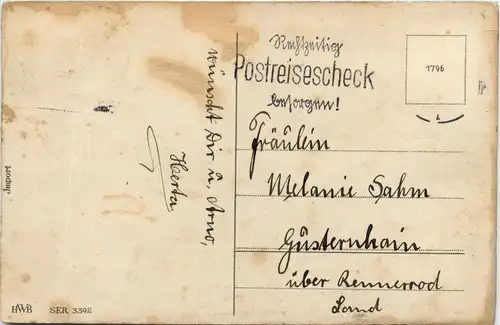 wünscht Dir u. Arno,
Herta
Import
HWB SER 3392
Rechtzeitig
Postreisescheck
besorgen!
1796
Fräulein
Melanie Sahm
Güsternhain
über Rennerod
Land